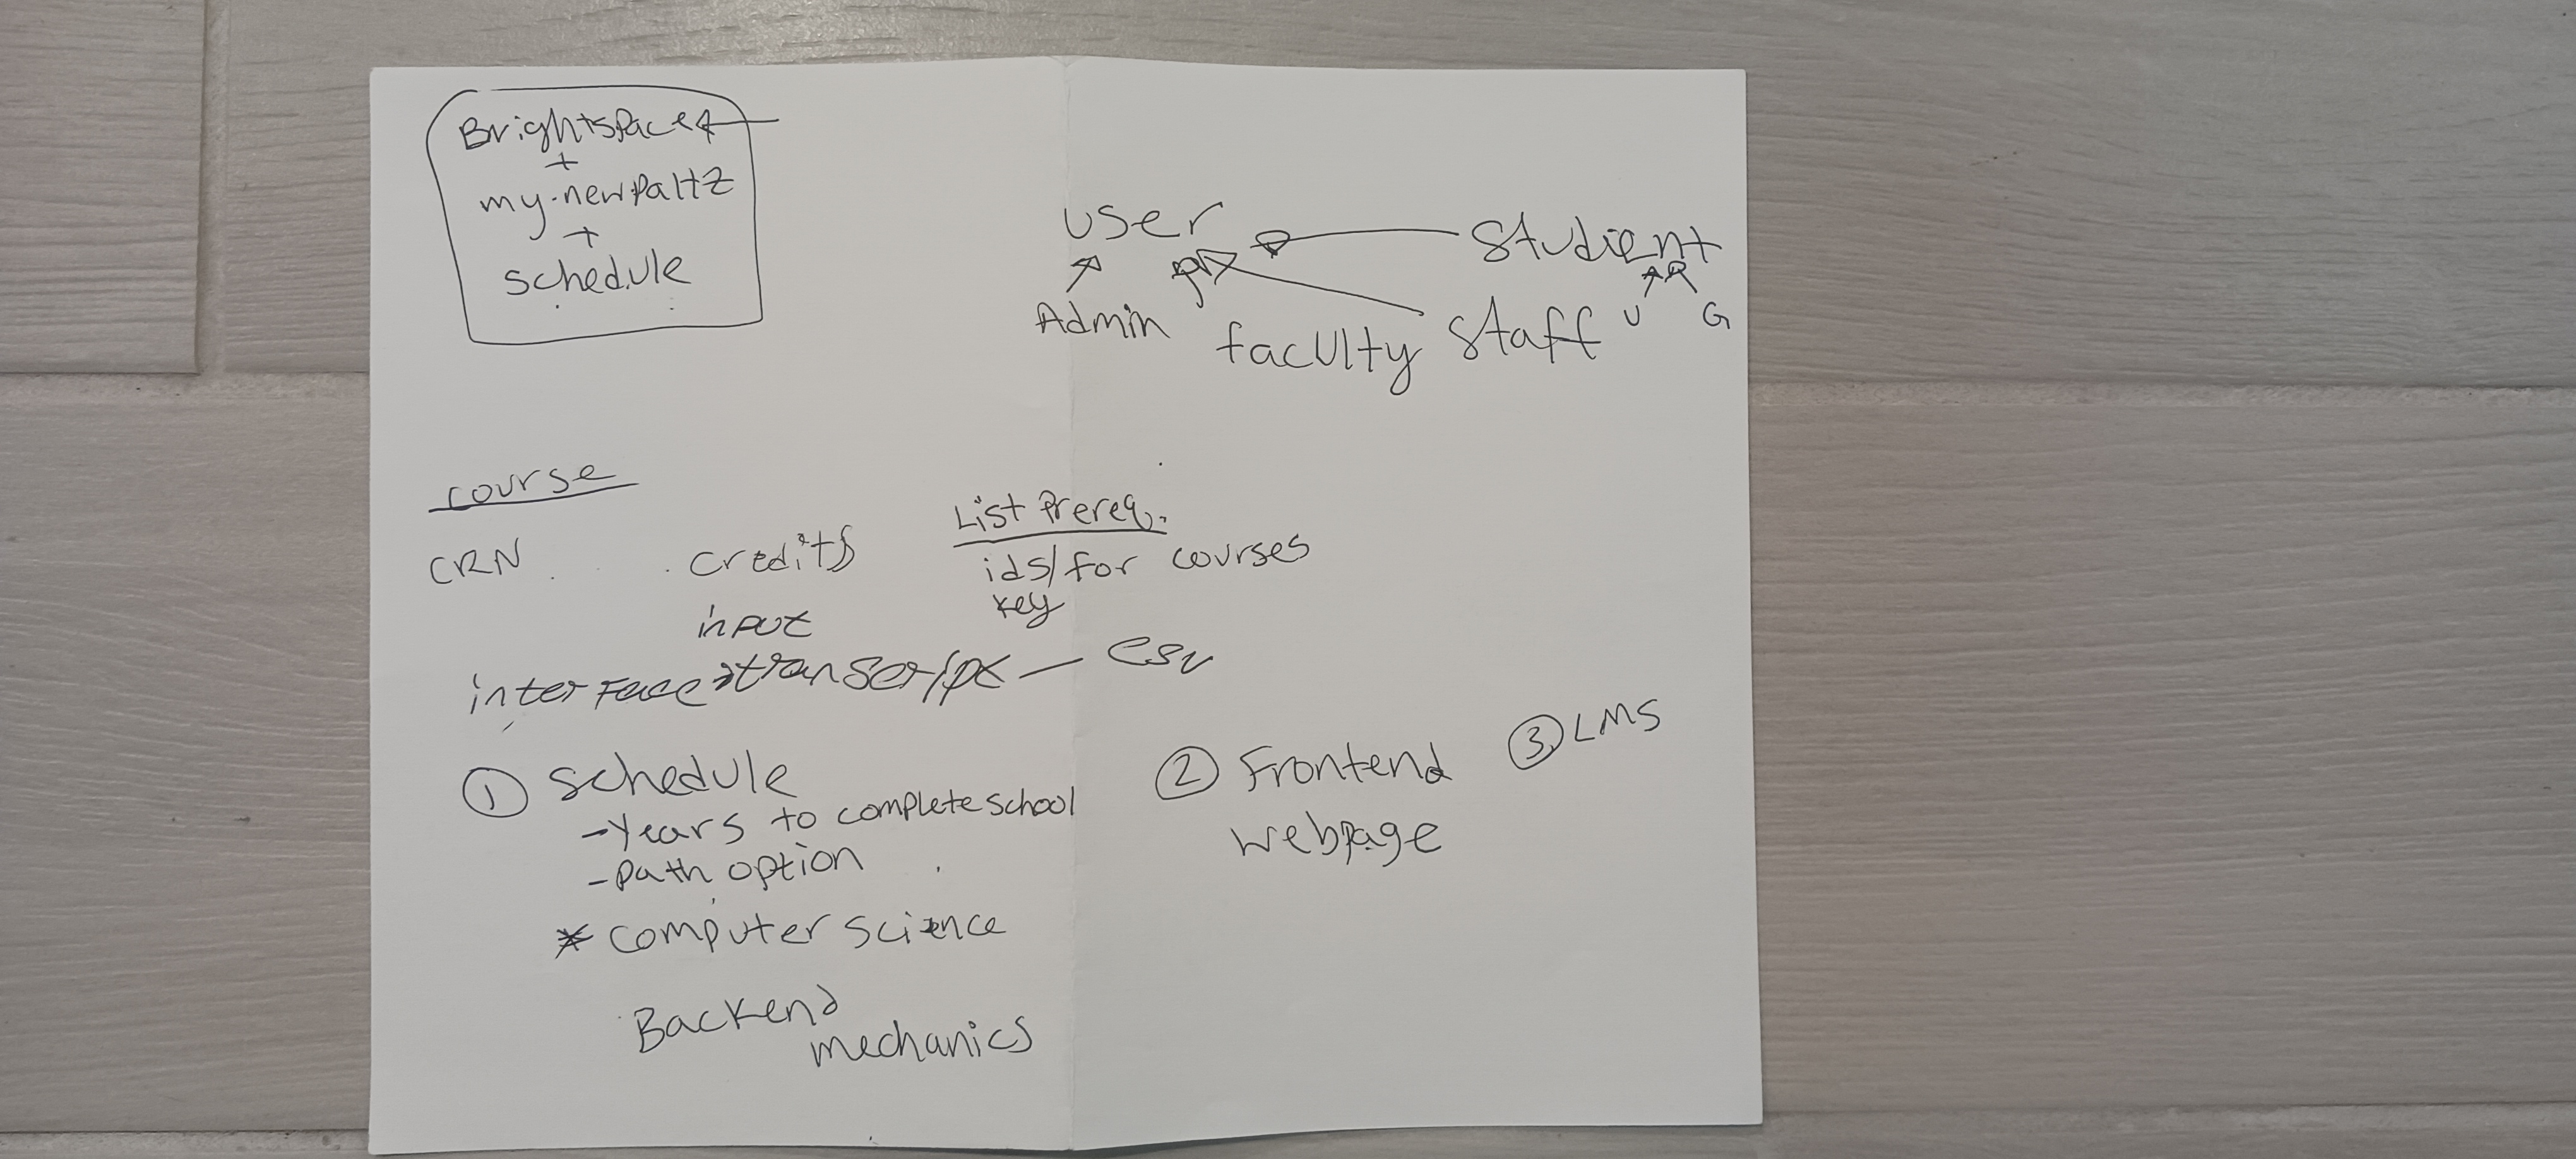 Brightspace
+
my.newpaltz
+
schedule
User
Student
Admin
faculty
staff
U
G
course
CRN
credits
List Prereq.
ids/for courses
key
input
interface
csv
① schedule
-years to complete school
-path option
* computer science
Backend
mechanics
② Frontend
webpage
③ LMS